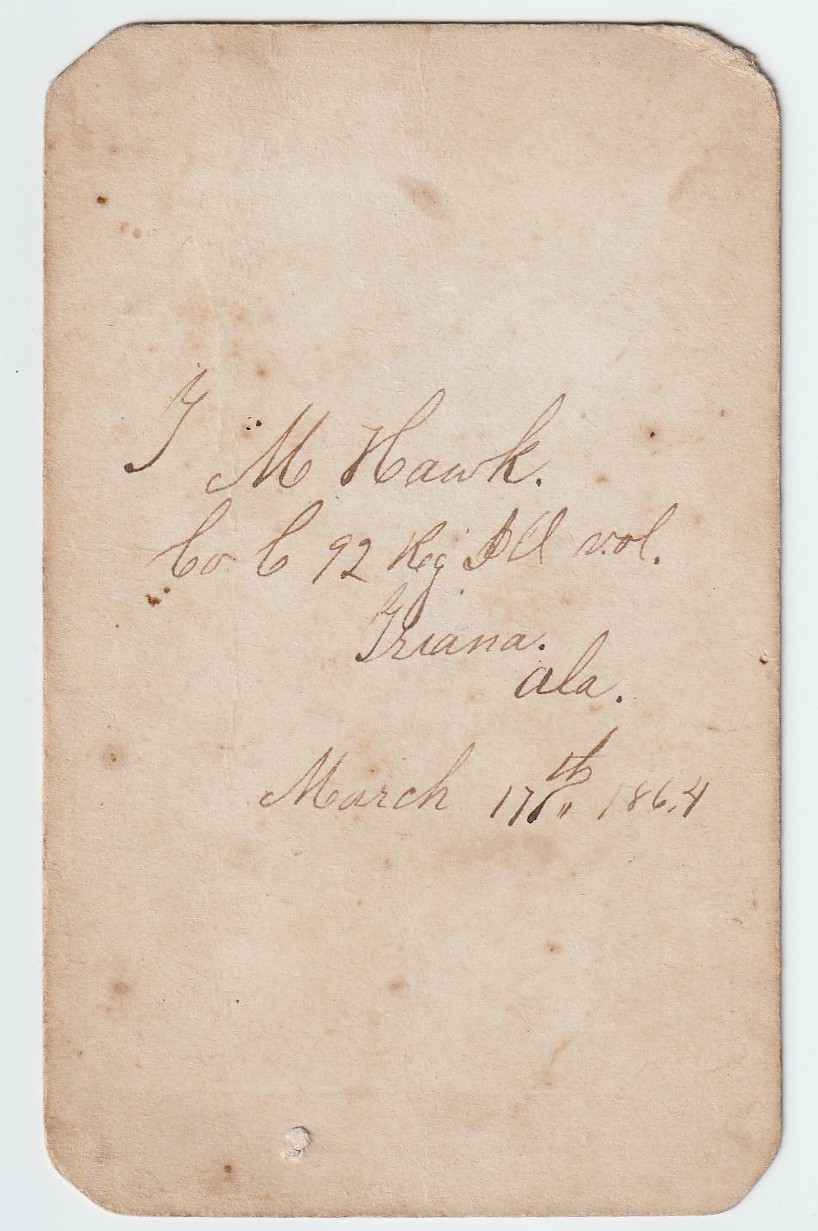 T M Hawk.
Co C 92 Reg Ill vol.
Triana.
Ala.
March 17th 1864